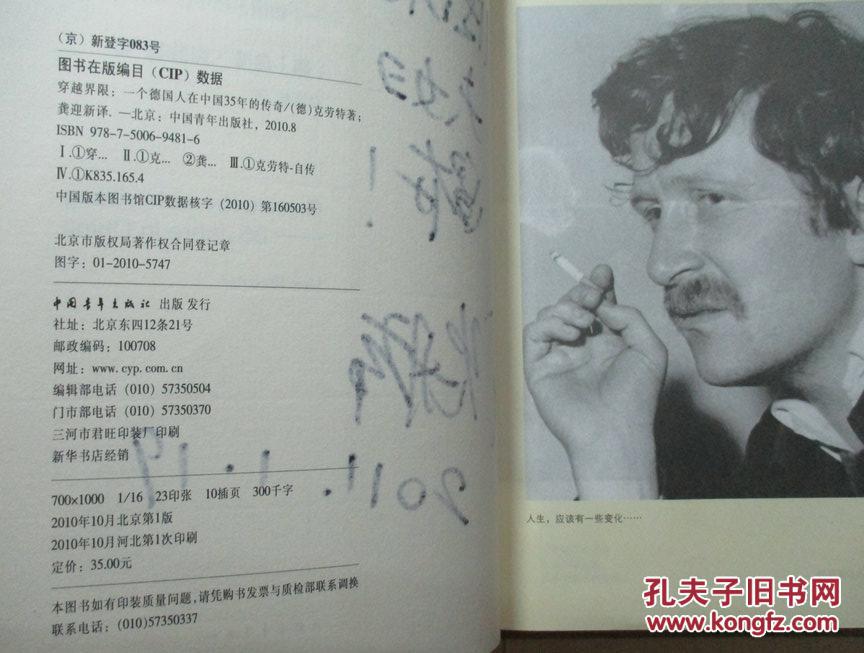 (京)新登字083号
图书在版编目(CIP)数据
穿越界限:一个德国人在中国35年的传奇/(德)克劳特著;
龚迎新译.—北京:中国青年出版社,2010.8
ISBN 978-7-5006-9481-6
Ⅰ.①穿… Ⅱ.①克… ②龚… Ⅲ.①克劳特-自传
Ⅳ.①K835.165.4
中国版本图书馆CIP数据核字(2010)第160503号
北京市版权局著作权合同登记章
图字:01-2010-5747
中国青年出版社 出版 发行
社址:北京东四12条21号
邮政编码:100708
网址:www.cyp.com.cn
编辑部电话(010)57350504
门市部电话(010)57350370
三河市君旺印装厂印刷
新华书店经销
700×1000 1/16 23印张 10插页 300千字
2010年10月北京第1版
2010年10月河北第1次印刷
定价:35.00元
本图书如有印装质量问题,请凭购书发票与质检部联系调换
联系电话:(010)57350337
2011.1.19
人生,应该有一些变化……
孔夫子旧书网
www.kongfz.com